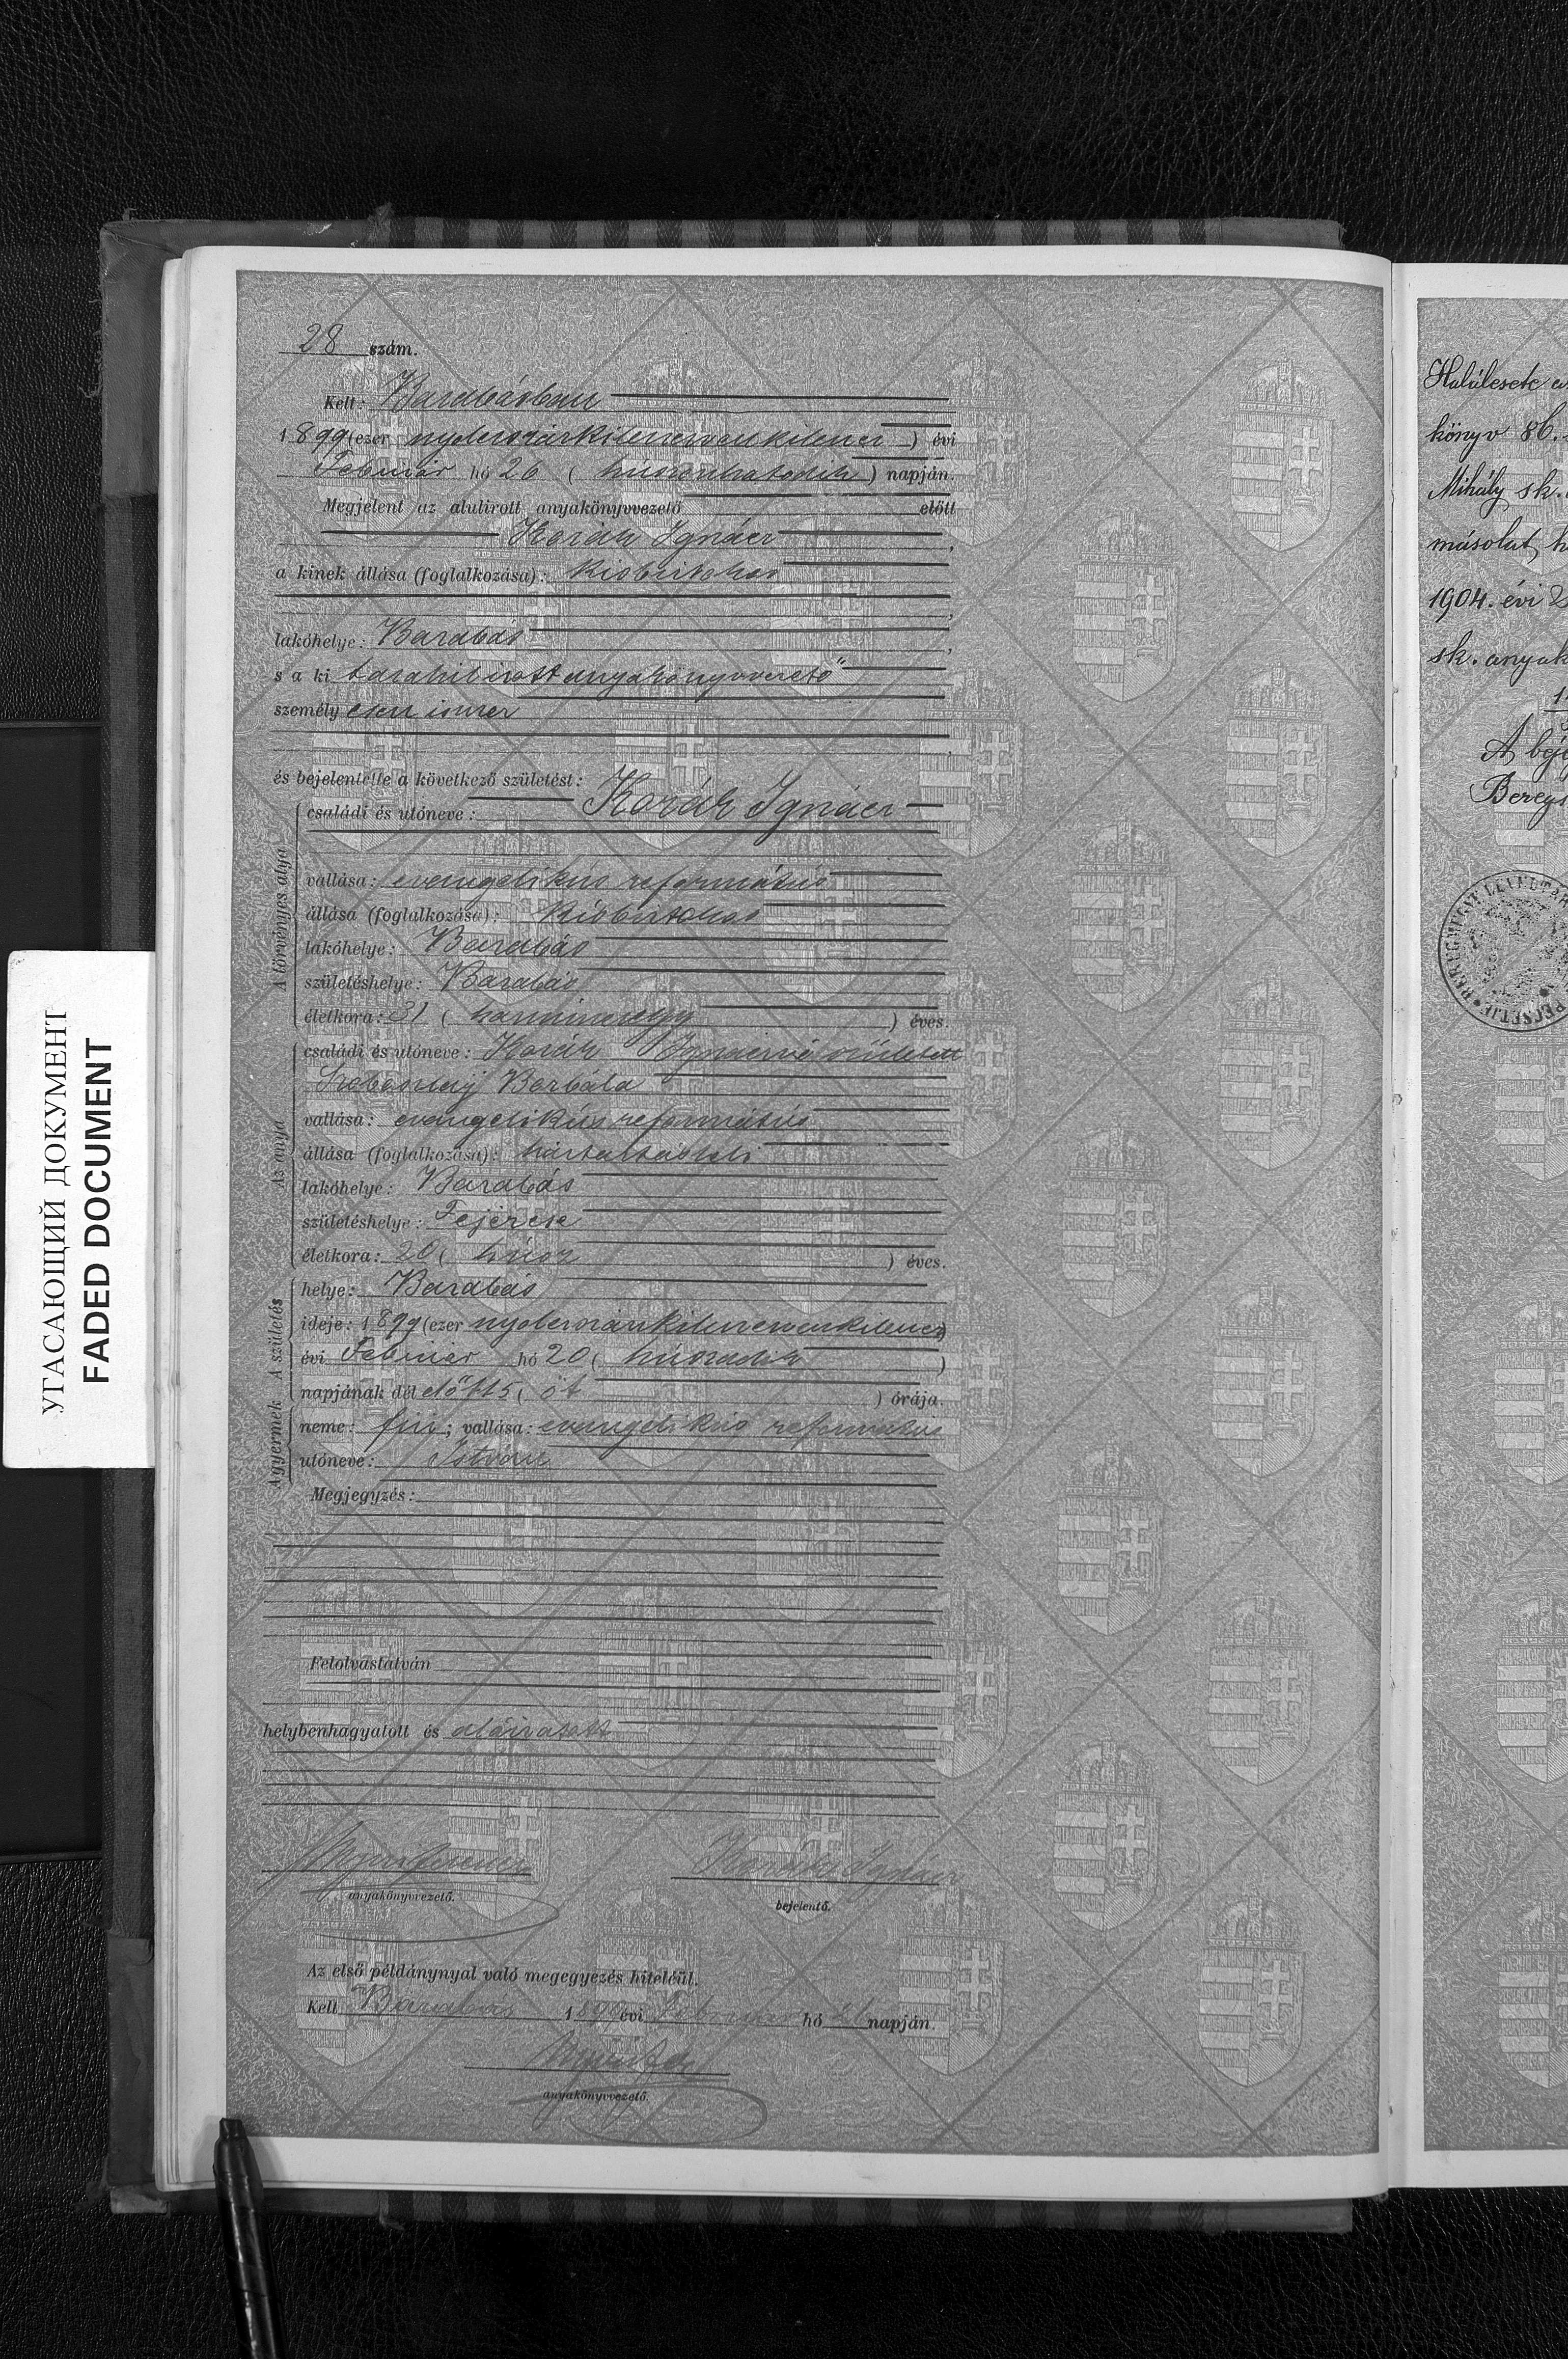 УГАСАЮЩИЙ ДОКУМЕНТ
FADED DOCUMENT
28 szám.
Kelt: Barabásban
1899 (ezer nyolcszázkilencvenkilencz) évi
Február hó 26 (huszonhatodik) napján.
Megjelent az alulirott anyakönyvvezető előtt
Kozák Ignácz,
a kinek állása (foglalkozása): kisbirtokos
lakóhelye: Barabás,
s a ki anyakönyvvezető
személyesen ismer
és bejelentette a következő születést:
A törvényes atya
családi és utóneve: Kozák Ignácz
vallása: evangelikus református
állása (foglalkozása): kisbirtokos
lakóhelye: Barabás
születéshelye: Barabás
életkora: 31 (harminczegy) éves.
Az anya
családi és utóneve: Kozák Ignáczné született
Borbála
vallása: evangelikus református
állása (foglalkozása): háztartásbeli
lakóhelye: Barabás
születéshelye: Fejércse
életkora: 20 (húsz) éves.
A születés
helye: Barabás
ideje: 1899 (ezer nyolcszázkilencvenkilencz)
évi Február hó 20 (huszadik)
napjának délelőtt 5 (öt) órája.
A gyermek
neme: fiú; vallása: evangelikus református
utóneve: István
Megjegyzés:
Felolvastatván
helybenhagyatott és aláiratott
Kozák Ignácz
anyakönyvvezető.
bejelentő.
Az első példánynyal való megegyezés hiteléül.
Kelt Barabás 1899 évi Február hó napján.
anyakönyvvezető.
Halálesete
könyv 86.
Mihály sk.
másolat
1904. évi
sk. anyak
A bej
Beregs